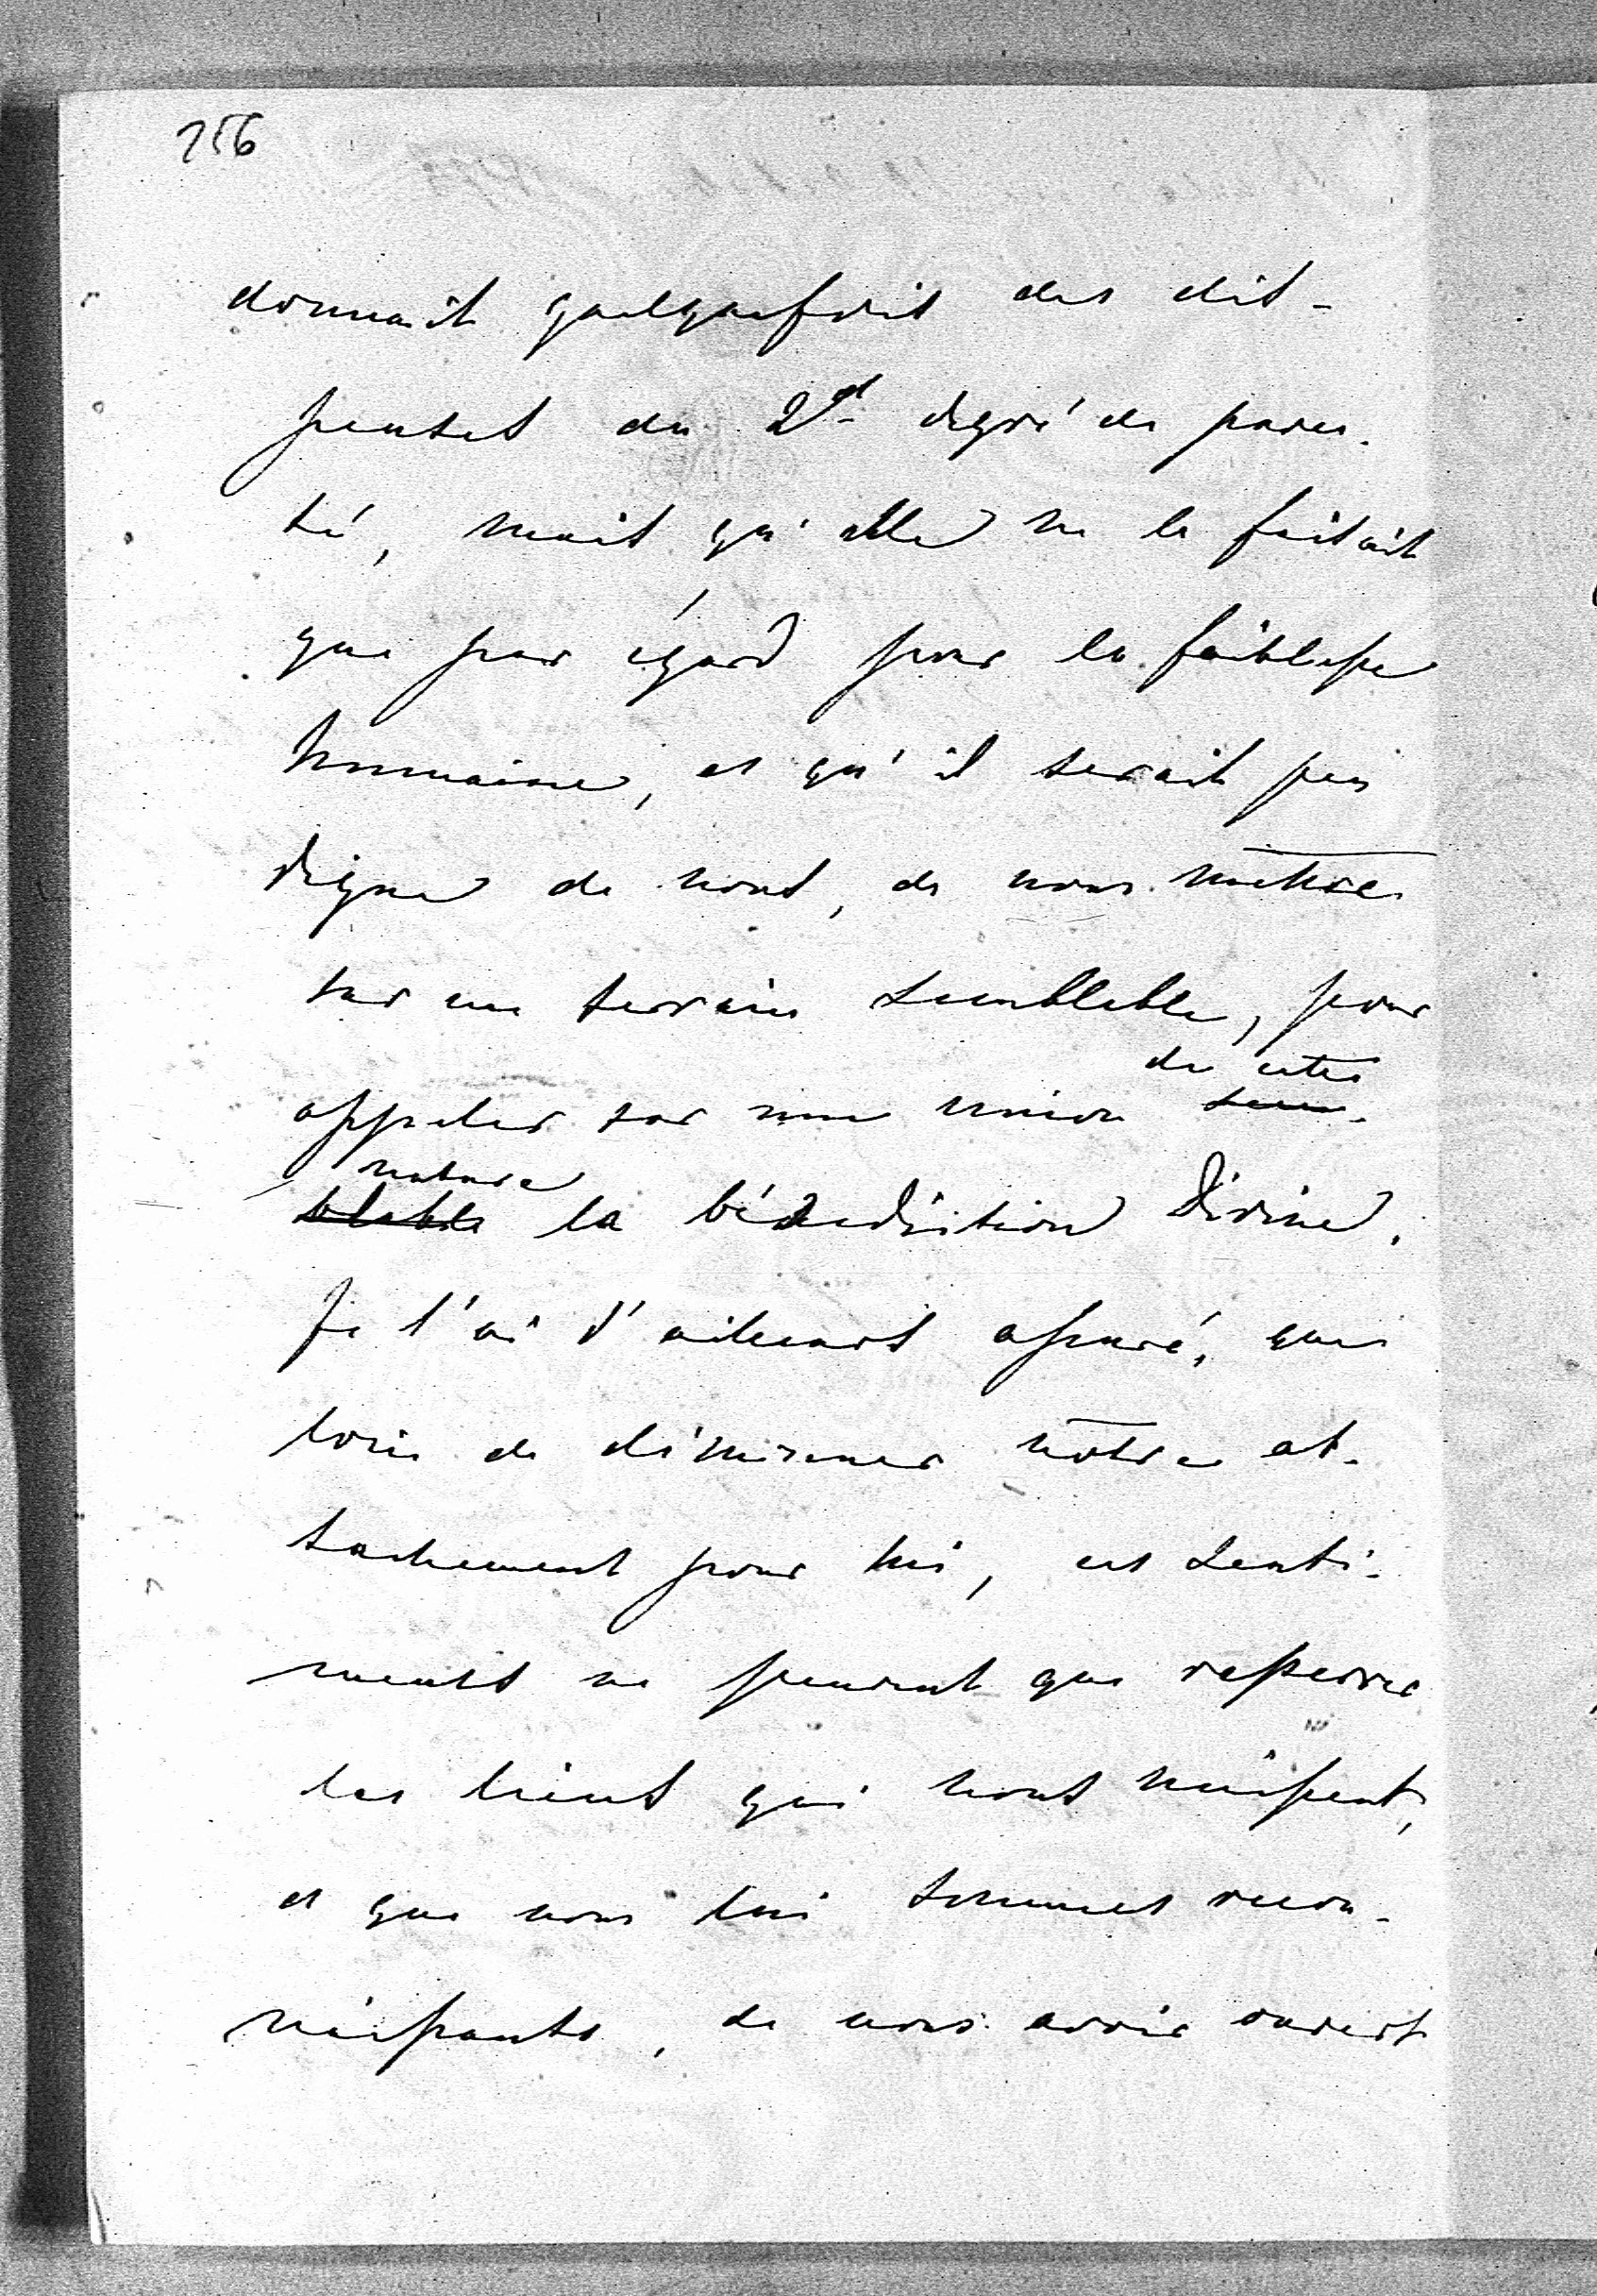 256
donnait quelquefois des dis-
penses du 2d degré de paren-
té, mais qu'elle ne le faisait
que par égard pour la faiblesse
humaine, et qu'il serait peu
digne de nous, de nous mettre
sur un terrain semblable, pour
de cette
appeler sur une union sem-
nature
blable la bénédiction Divine.
Je l'ai d'ailleurs assuré, que
loin de diminuer nôtre at-
tachement pour lui, ces senti-
ments ne peuvent que resserrer
les liens qui nous unissent,
et que nous lui sommes recon-
naissants, de nous avoir ouvert